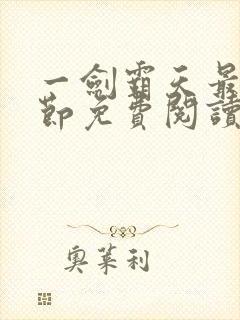 一劍霸天最
節免費閱讀
奧萊利